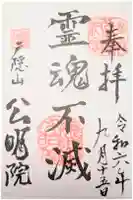 奉拝
令和六年
九月十五日
霊魂不滅
二隠山
公明院